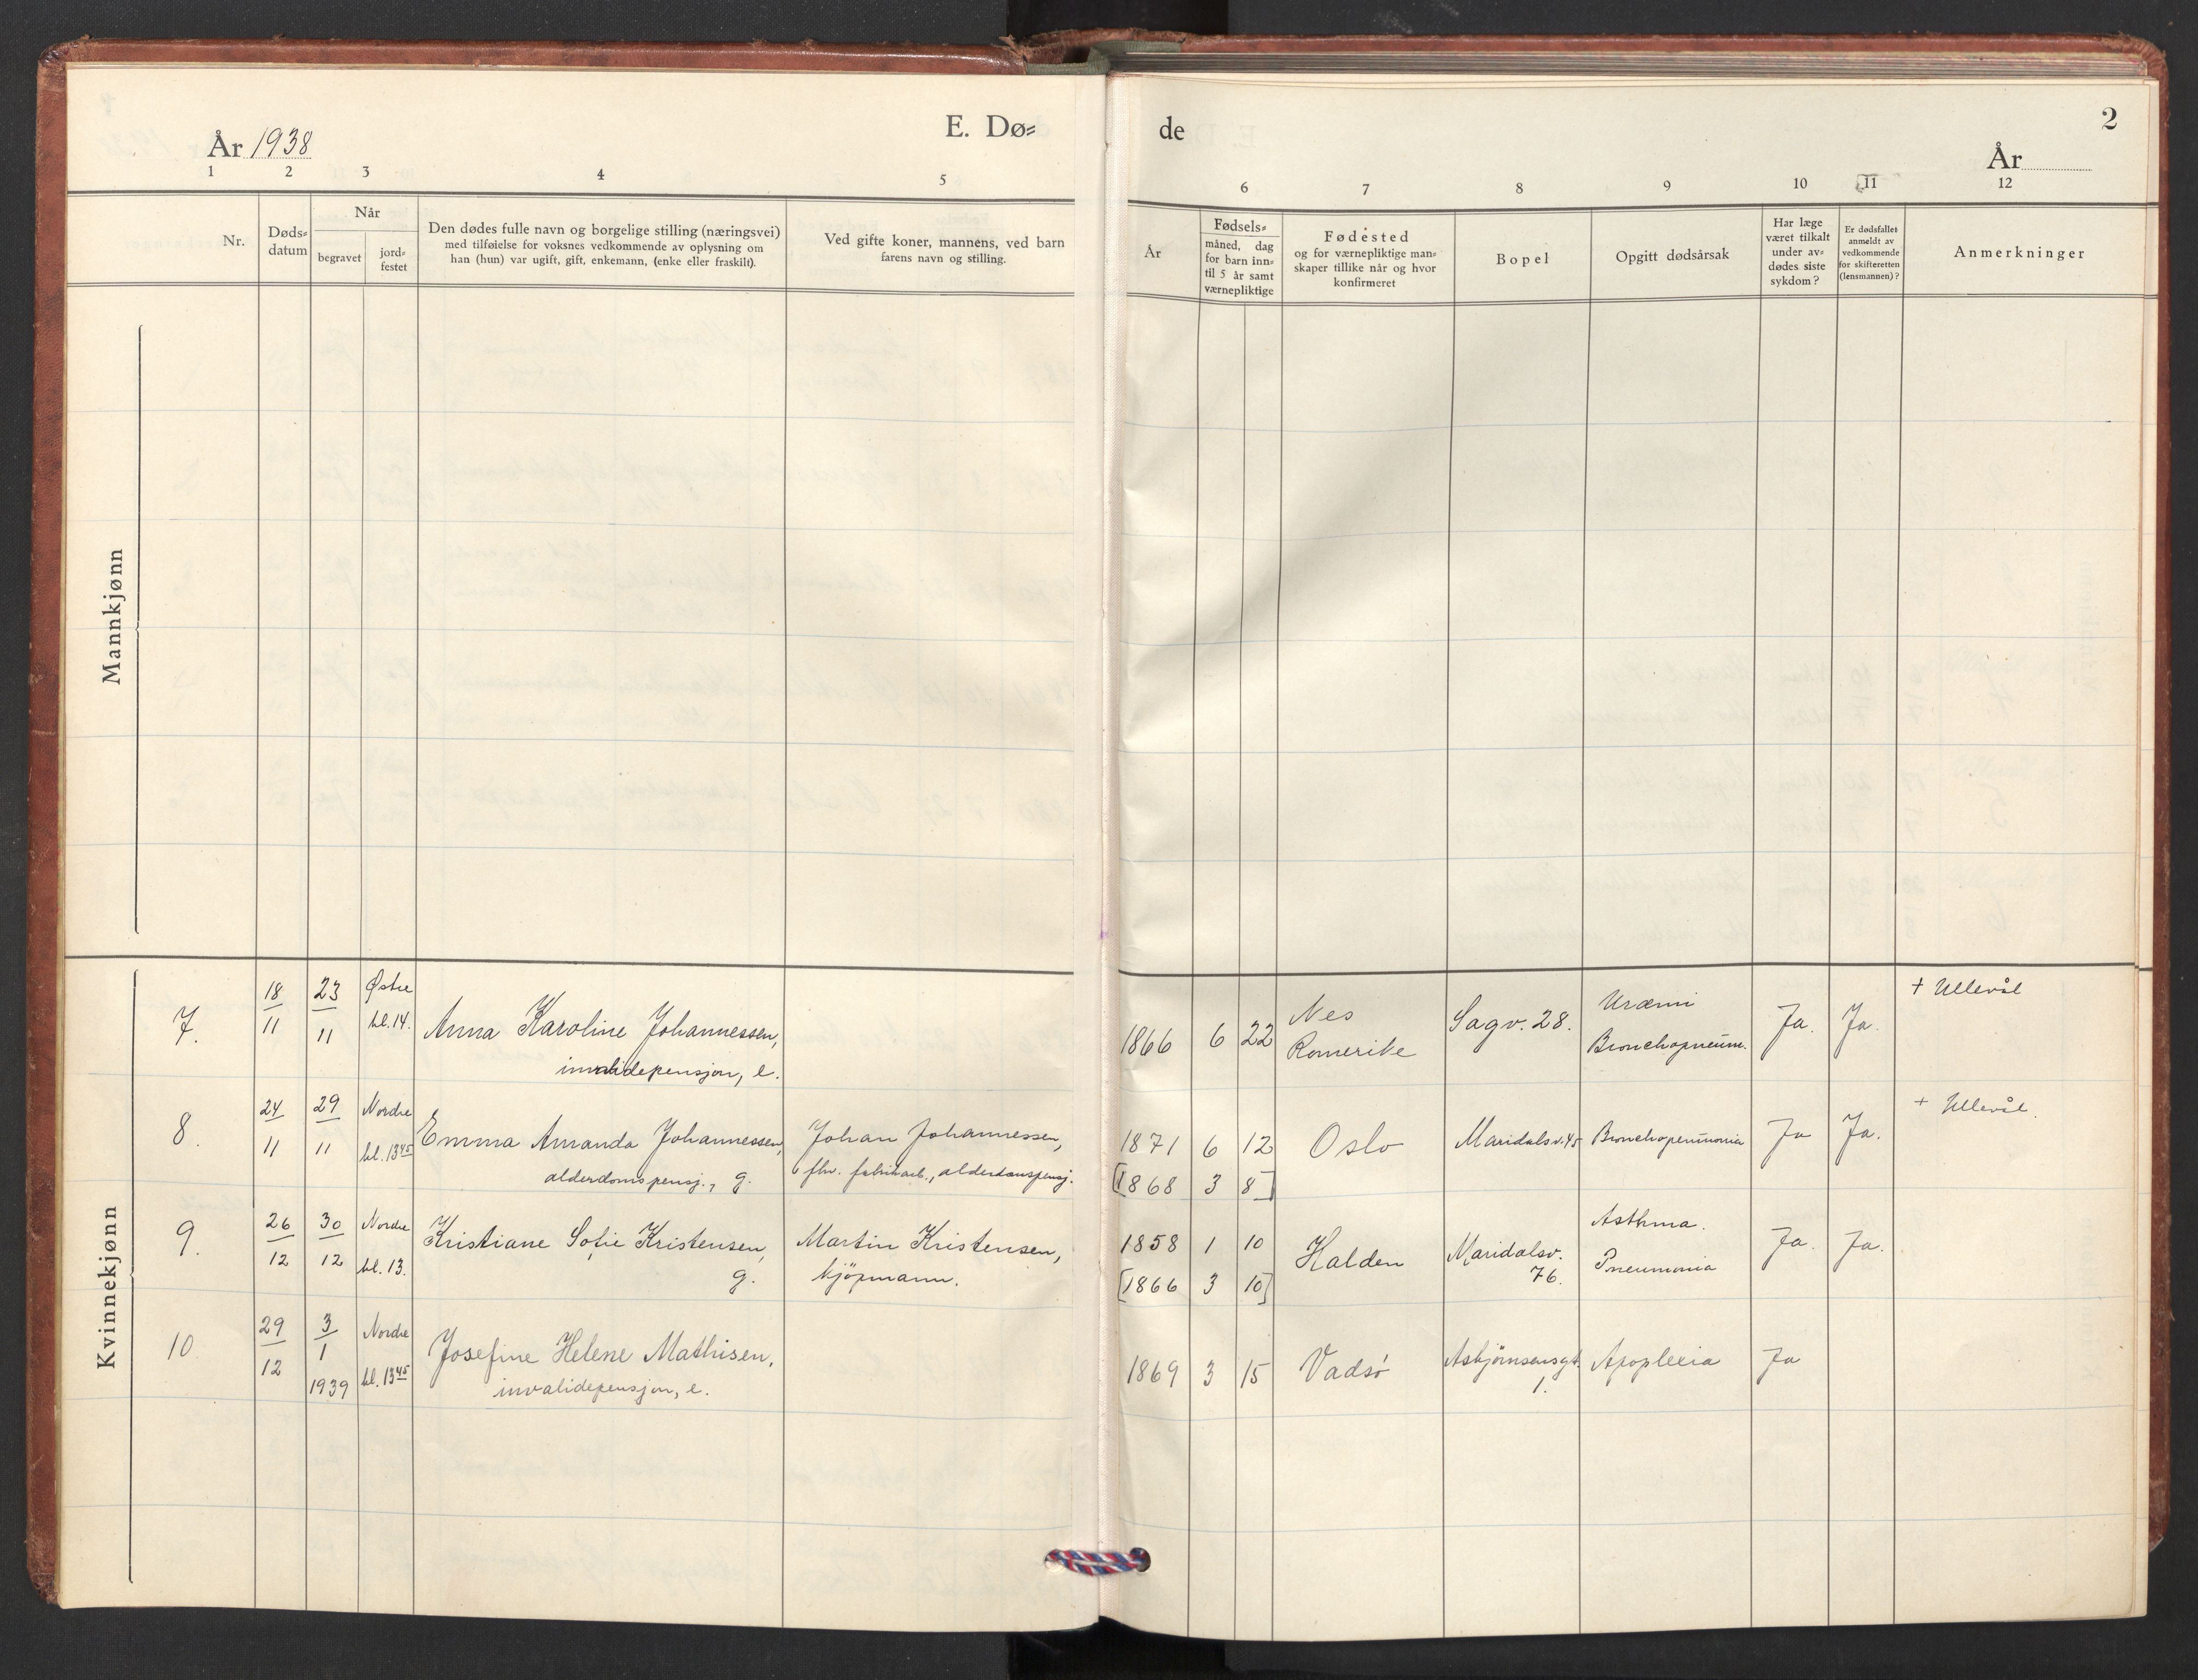 E. Dø=
de
2
År 1938
År
1 2 3 4 5
6 7 8 9 10 11 12
Nr.
Døds=
datum
Når
begravet
jord=
festet
Den dødes fulle navn og borgelige stilling (næringsvei)
med tilføielse for voksnes vedkommende av oplysning om
han (hun) var ugift, gift, enkemann, (enke eller fraskilt).
Ved gifte koner, mannens, ved barn
farens navn og stilling.
År
Fødsels=
måned, dag
for barn inn=
til 5 år samt
værnepliktige
Fødested
og for værnepliktige man=
skaper tillike når og hvor
konfirmeret
Bopel
Opgitt dødsårsak
Har læge
været tilkalt
under av=
dødes siste
sykdom?
Er dødsfallet
anmeldt av
vedkommende
for skifteretten
(lensmannen)?
Anmerkninger
Mannkjønn
Kvinnekjønn
7.
18
11
23
11
Østre
kl. 14.
Anna Karoline Johannessen,
invalidepensjon, e.
1866 6 22
Nes
Romerike
Sagv. 28.
Uræmi
Bronchopneum.
Ja.
Ja.
+ Ullevål
8.
24
11
29
11
Nordre
kl. 13 45
Emma Amanda Johannessen,
alderdomspensj., g.
Johan Johannessen,
fhv. fabrikarb., alderdomspensj.
1871 6 12
[1868 3 8]
Oslo
Maridalsv. 45
Bronchopneumonia
Ja
Ja.
+ Ullevål.
9.
26
12
30
12
Nordre
kl. 13.
Kristiane Sofie Kristensen,
g.
Martin Kristensen,
kjøpmann.
1858 1 10
[1866 3 10]
Halden
Maridalsv.
76.
Asthma.
Pneumonia
Ja.
Ja.
10
29
12
3
1
1939
Nordre
kl. 13 45
Josefine Helene Mathisen,
invalidepensjon, e.
1869 3 15
Vadsø
Asbjørnsensgt.
1.
Apoplexia
Ja